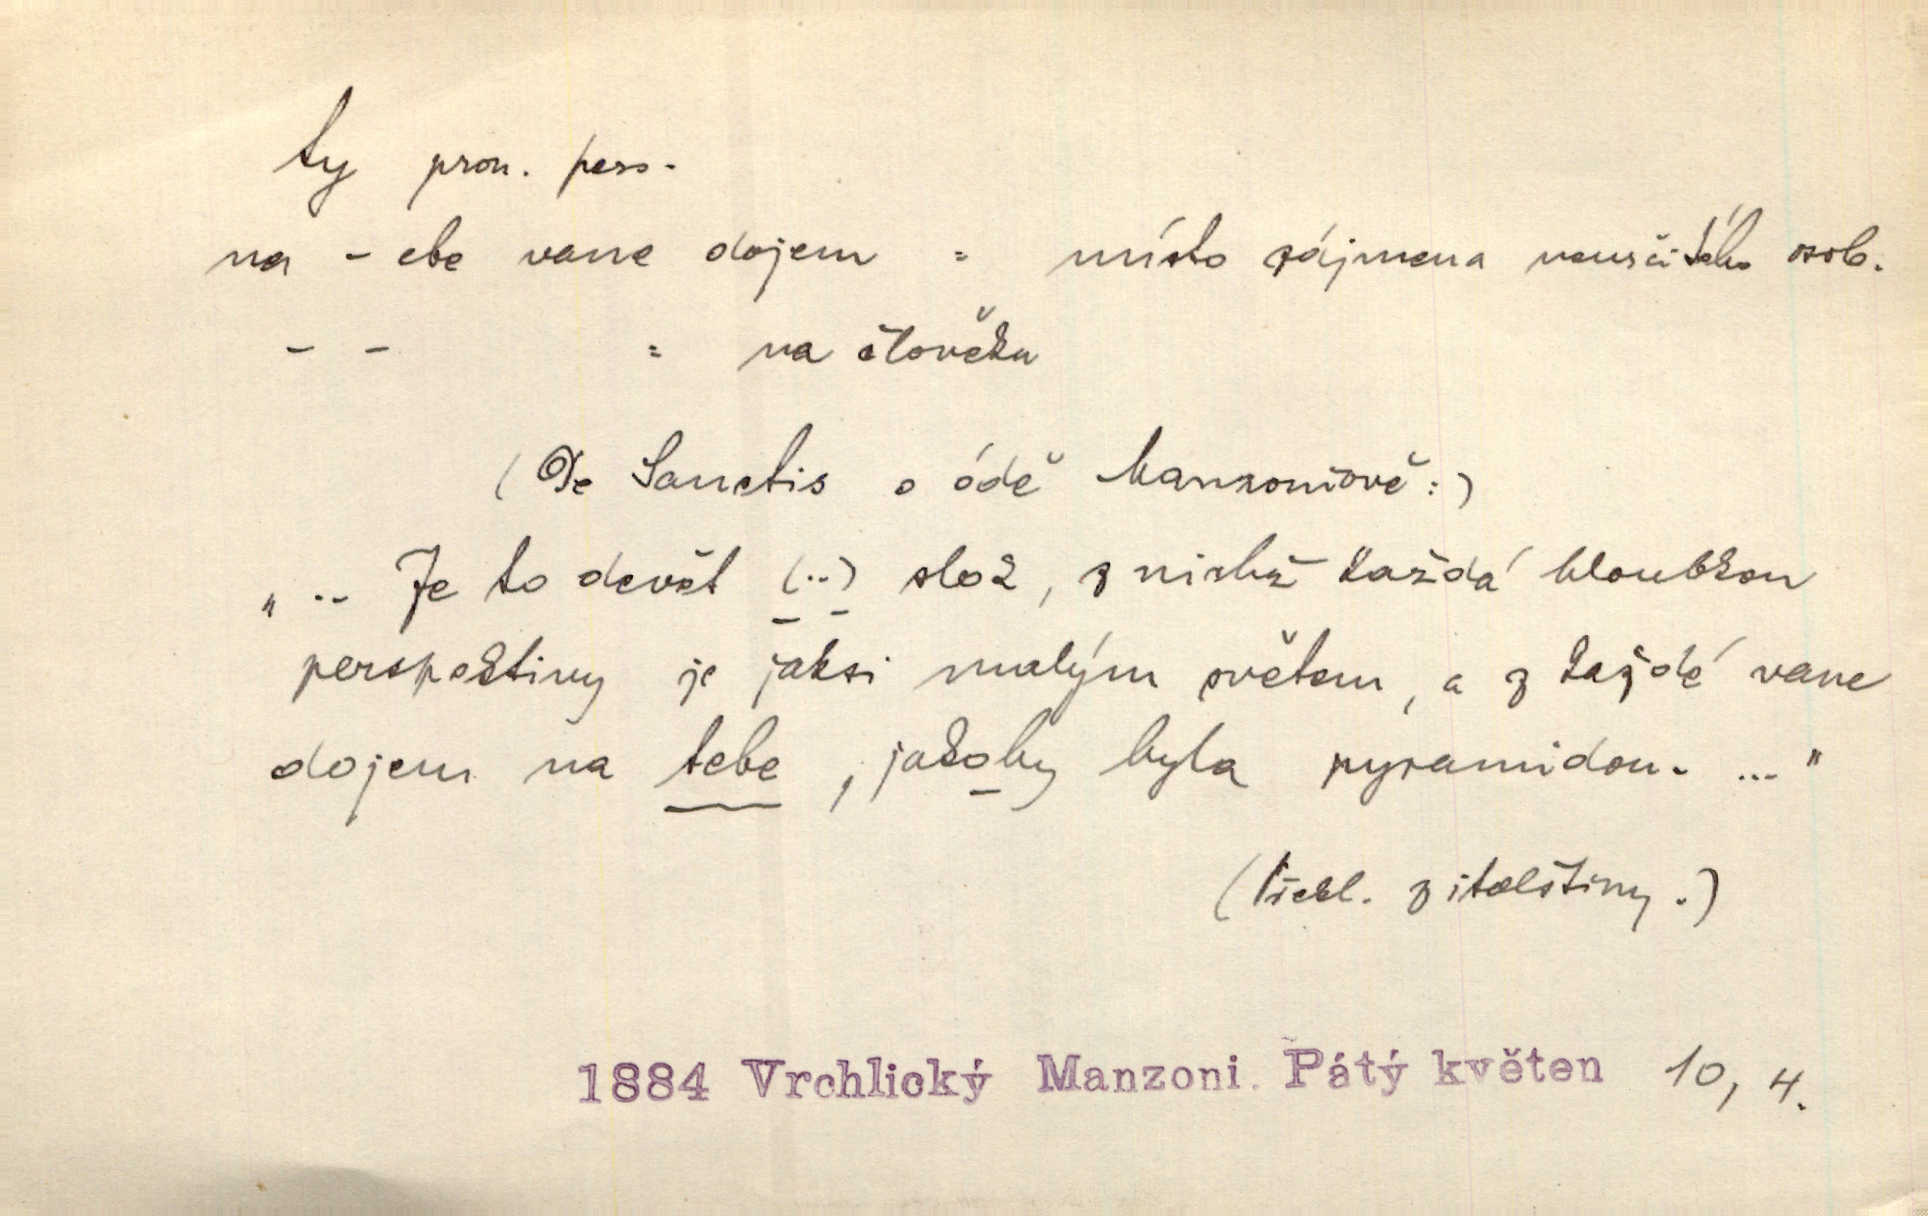 ty pron. pers.
na - ebe vane dojem = místo zájmena neurčitého osob.
- - = na člověka
(De Sanctis o ódě Manzoniově:)
„.. Je to devět (..) slok, z nichž každá hloubkou
perspektivy je jaksi malým světem, a z každé vane
dojem na tebe, jakoby byla pyramidou. ..."
(Překl. z italštiny.)
1884 Vrchlický Manzoni. Pátý květen 10, 4.